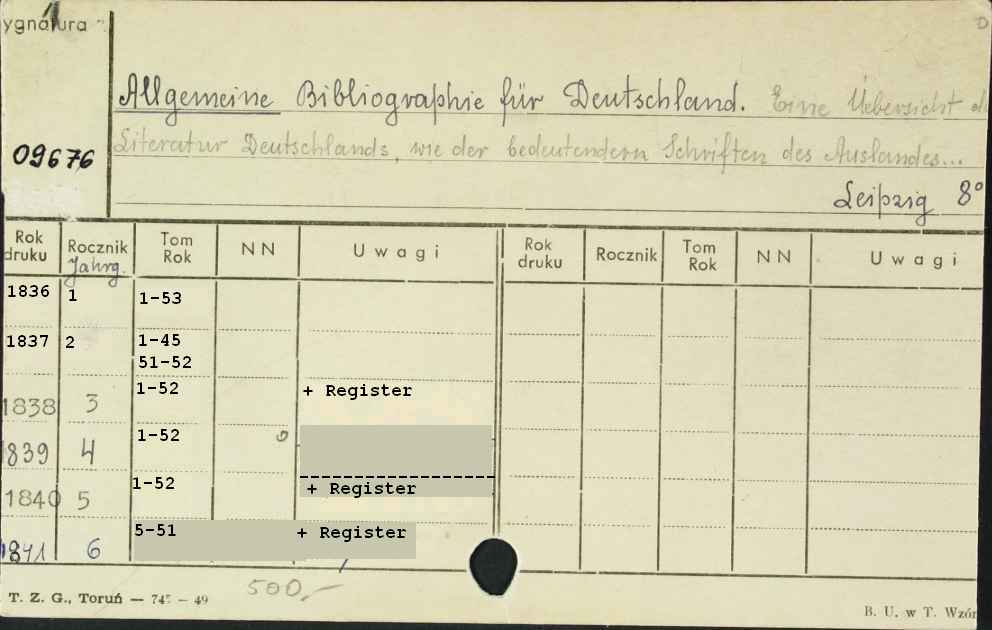 ygnatura
D
Allgemeine Bibliographie für Deutschland. Eine Uebersicht d
09676
Literatur Deutschlands, wie der bedeutendern Schriften des Auslandes...
Leipzig 8°
Rok druku Rocznik Jahrg. Tom Rok NN Uwagi Rok druku Rocznik Tom Rok NN Uwagi
1836 1 1-53
1837 2 1-45
51-52
1838 3 1-52 + Register
1839 4 1-52
1840 5 1-52 + Register
1841 6 5-51 + Register
500,-
T. Z. G., Toruń — 745 — 49
B. U. w T. Wzór